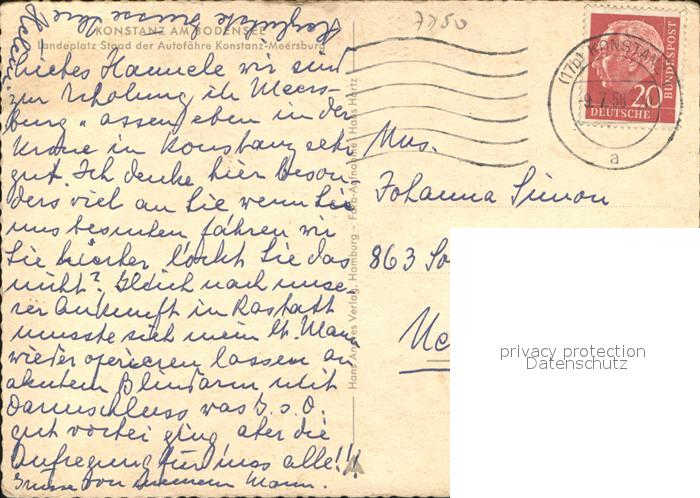 KONSTANZ AM BODENSEE
Landeplatz Staad der Autofähre Konstanz-Meersburg
Herzlichste Grüsse Ihre
liebes Hannele wir sind
zur Erholung in Meers-
burg, assen eben in der
Krone in Konstanz sehr
gut. Ich denke hier beson
ders viel an Sie wenn Sie
uns besuchen fahren wir
Sie hierher lockt Sie das
nicht? Gleich nach unse
rer Ankunft in Rastatt
musste sich mein lb. Mann
wieder operieren lassen an
akutem Blinddarm mit
Darmschluss was G. s. D.
gut vorbei ging aber die
Aufregung für uns alle!!!
Grüsse von meinem Mann.
Hans Andres Verlag, Hamburg - Farb-Aufnahme: Hans Hartz
7750
(17b) KONSTANZ
9.7.58
a
20
DEUTSCHE
BUNDESPOST
Mrs.
Johanna Simon
863
privacy protection
Datenschutz